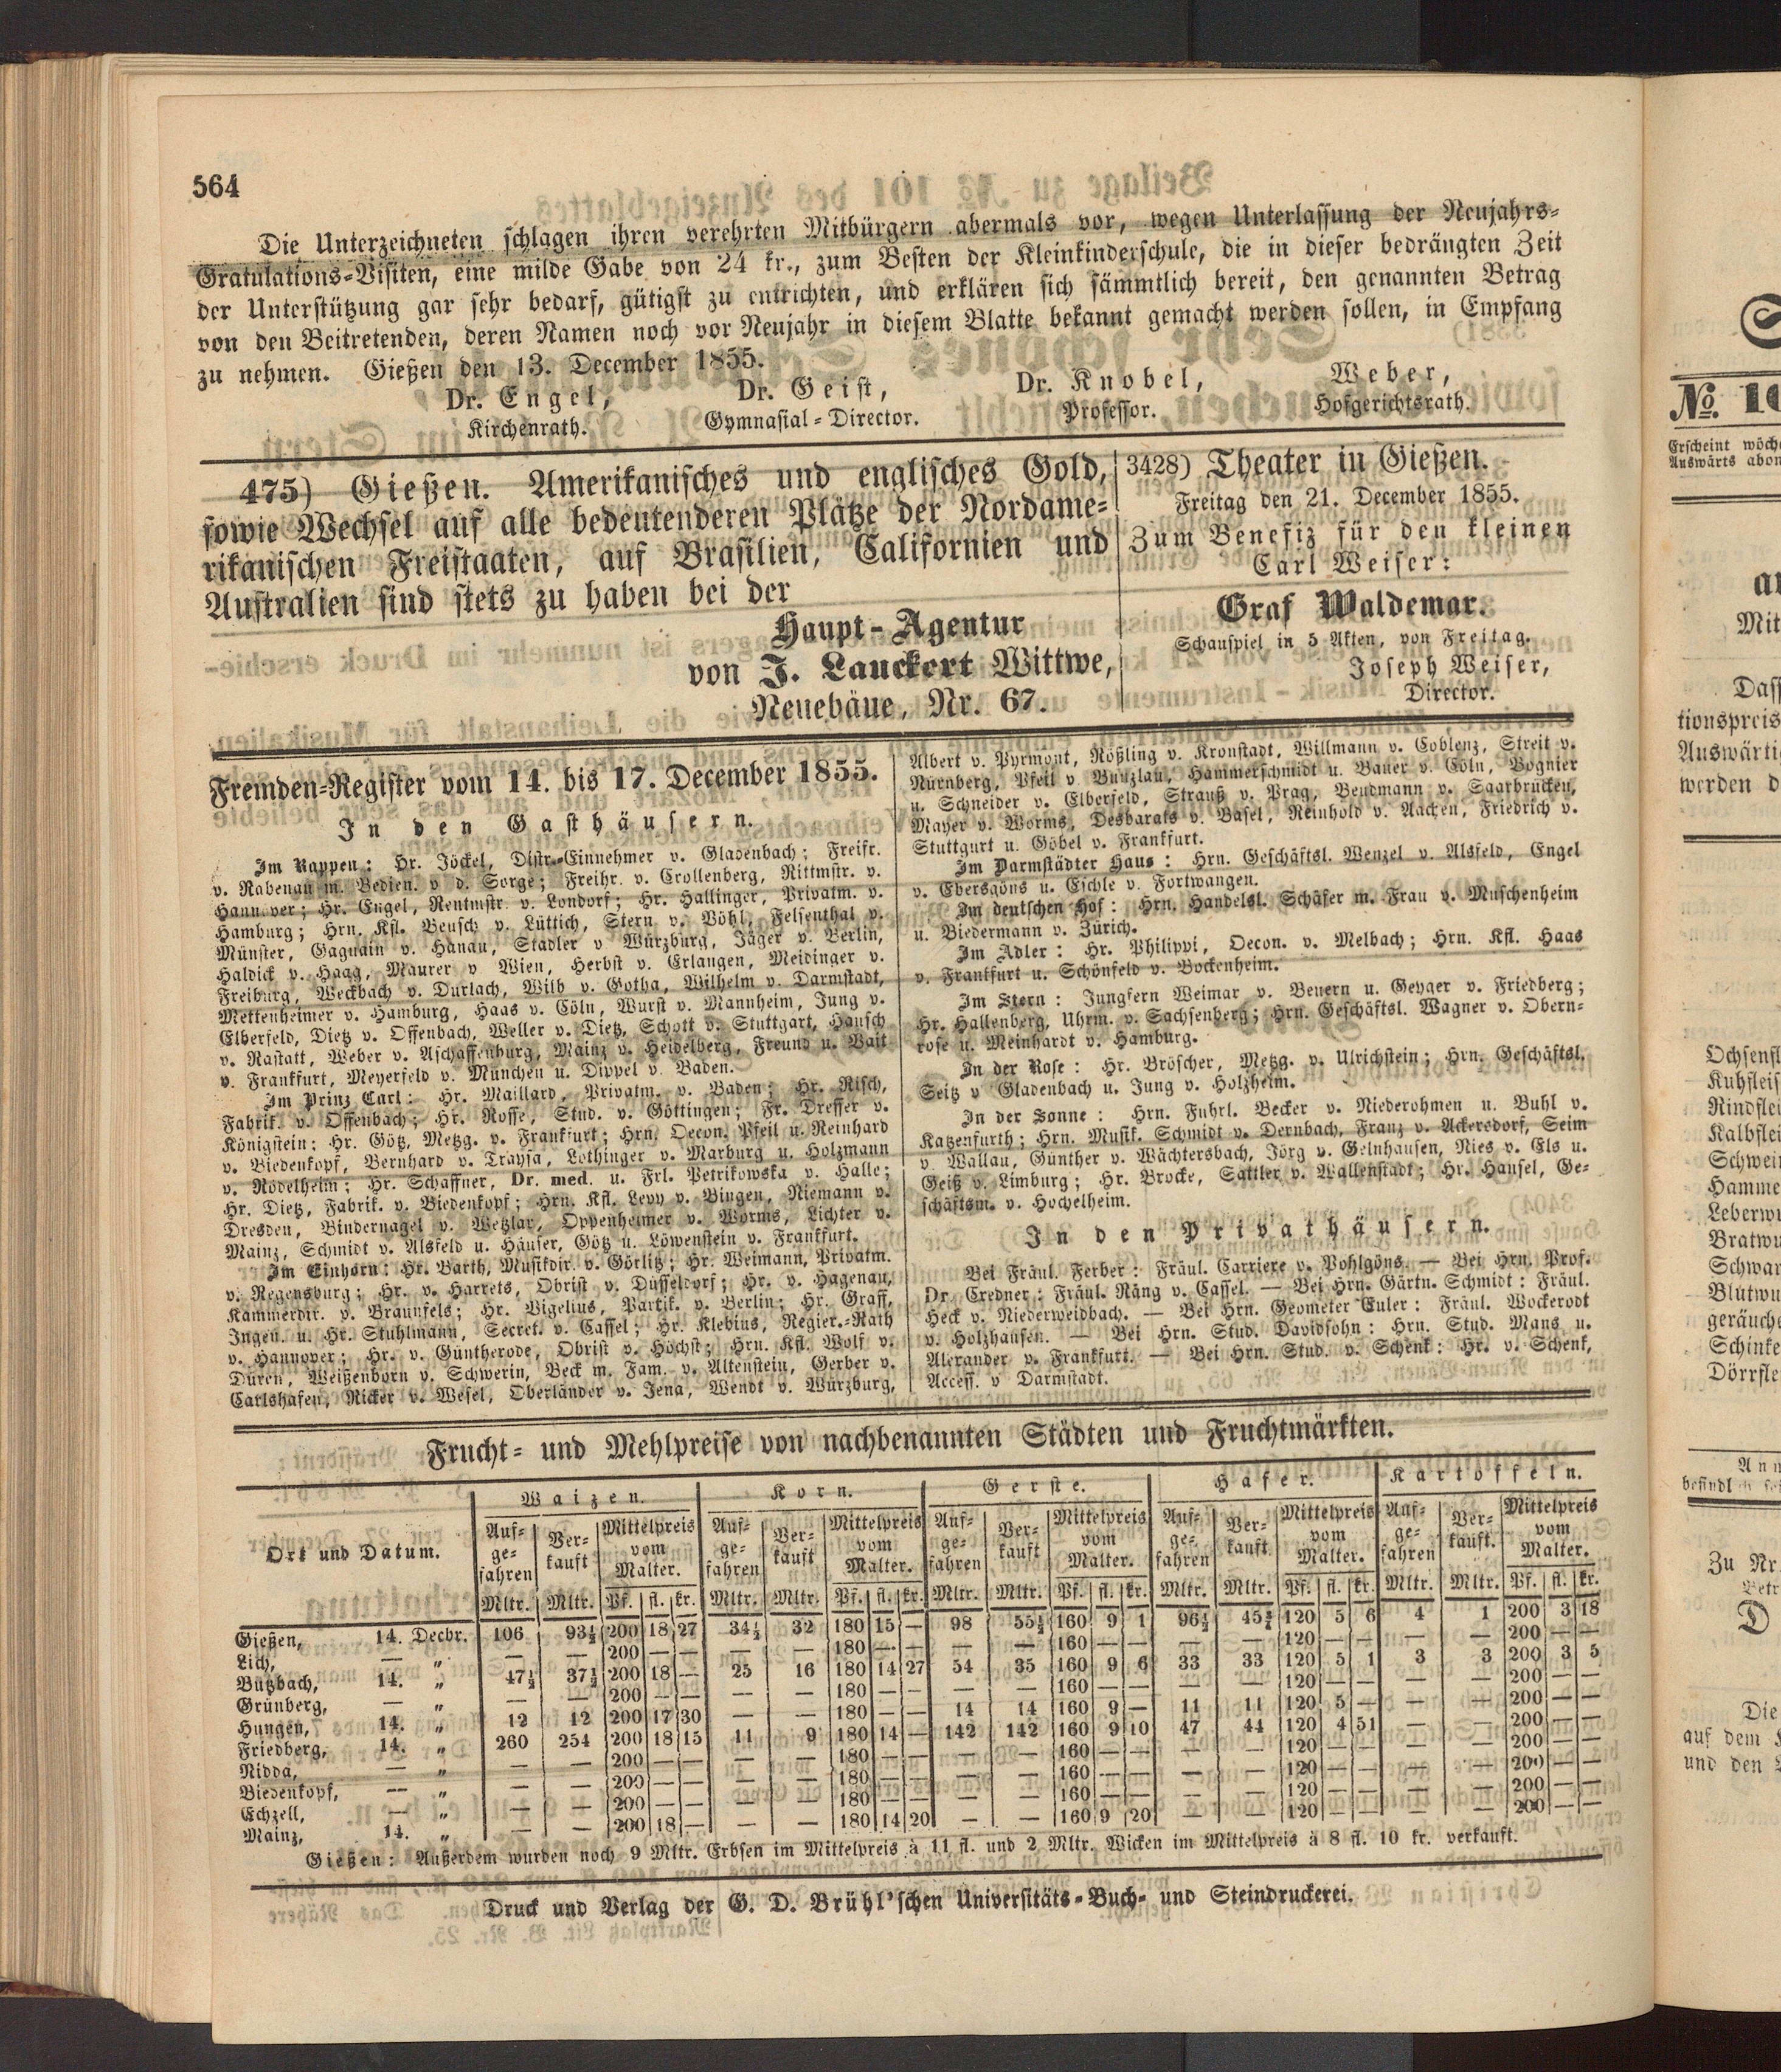 564
Die Unterzeichneten schlagen ihren verehrten Mitbürgern abermals vor, wegen Unterlassung der Neujahrs-
Gratulations-Visiten, eine milde Gabe von 24 kr., zum Besten der Kleinkinderschule, die in dieser bedrängten Zeit
der Unterstützung gar sehr bedarf, gütigst zu entrichten, und erklären sich sämmtlich bereit, den genannten Betrag
von den Beitretenden, deren Namen noch vor Neujahr in diesem Blatte bekannt gemacht werden sollen, in Empfang
zu nehmen. Gießen den 13. December 1855.
Dr. Engel, Dr. Geist, Dr. Knobel, Weber,
Kirchenrath. Gymnasial-Director. Professor. Hofgerichtsrath.
475) Gießen. Amerikanisches und englisches Gold,
sowie Wechsel auf alle bedeutenderen Plätze der Nordame-
rikanischen Freistaaten, auf Brasilien, Californien und
Australien sind stets zu haben bei der
Haupt-Agentur
von J. Lauckert Wittwe,
Neuebäue, Nr. 67.
3428) Theater in Gießen.
Freitag den 21. December 1855.
Zum Benefiz für den kleinen
Carl Weiser:
Graf Waldemar.
Schauspiel in 5 Akten, von Freitag.
Joseph Weiser,
Director.
Fremden-Register vom 14. bis 17. December 1855.
In den Gasthäusern.
Im Rappen: Hr. Jöckel, Distr.-Einnehmer v. Gladenbach; Freifr.
v. Rabenau m. Bedien. v d. Sorge; Freihr. v. Crollenberg, Rittmstr. v.
Hannover; Hr. Engel, Rentmstr. v. Londorf; Hr. Hallinger, Privatm. v.
Hamburg; Hrn. Kfl. Beusch v. Lüttich, Stern v. Vöhl, Felsenthal v.
Münster, Gaquain v. Hanau, Stadler v Würzburg, Jäger v. Berlin,
Haldick v. Haag, Maurer v Wien, Herbst v. Erlangen, Meidinger v.
Freiburg, Weckbach v. Durlach, Wilb v. Gotha, Wilhelm v. Darmstadt,
Mettenheimer v. Hamburg, Haas v. Cöln, Wurst v. Mannheim, Jung v.
Elberfeld, Dietz v. Offenbach, Weller v. Dietz, Schott v. Stuttgart, Hausch
v. Rastatt, Weber v. Aschaffenburg, Mainz v. Heidelberg, Freund u. Vait
v. Frankfurt, Meyerfeld v. München u. Dippel v. Baden.
Im Prinz Carl: Hr. Maillard, Privatm. v. Baden; Hr. Risch,
Fabrik. v. Offenbach; Hr. Rosse, Stud. v. Göttingen; Fr. Dresser v.
Königstein; Hr. Götz, Metzg. v. Frankfurt; Hrn. Oecon. Pfeil u. Reinhard
v. Biedenkopf, Bernhard v. Traysa, Lothinger v. Marburg u. Holzmann
v. Rödelheim; Hr. Schaffner, Dr. med. u. Frl. Petrikowska v. Halle;
Hr. Dietz, Fabrik. v. Biedenkopf; Hrn. Kfl. Levy v. Bingen, Niemann v.
Dresden, Bindernagel v. Wetzlar, Oppenheimer v. Worms, Lichter v.
Mainz, Schmidt v. Alsfeld u. Häuser, Götz u. Löwenstein v. Frankfurt.
Im Einhorn: Hr. Barth, Musikdir. v. Görlitz; Hr. Weimann, Privatm.
v. Regensburg; Hr. v. Harrets, Obrist v. Düsseldorf; Hr. v. Hagenau,
Kammerdir. v. Braunfels; Hr. Vigelius, Partik. v. Berlin; Hr. Graff,
Ingen. u. Hr. Stuhlmann, Secret. v. Cassel; Hr. Klebius, Regier.-Rath
v. Hannover; Hr. v. Güntherode, Obrist v. Höchst; Hrn. Kfl. Wolf v.
Düren, Weißenborn v. Schwerin, Beck m. Fam. v. Altenstein, Gerber v.
Carlshafen, Ricker v. Wesel, Oberländer v. Jena, Wendt v. Würzburg,
Albert v. Pyrmont, Rößling v. Kronstadt, Willmann v. Coblenz, Streit v.
Nürnberg, Pfeil v. Bunzlau, Hammerschmidt u. Bauer v. Cöln, Vognier
u. Schneider v. Elberfeld, Strauß v. Prag, Bendmann v. Saarbrücken,
Mayer v. Worms, Desbarats v. Basel, Reinhold v. Aachen, Friedrich v.
Stuttgurt u. Göbel v. Frankfurt.
Im Darmstädter Haus: Hrn. Geschäftsl. Wenzel v. Alsfeld, Engel
v. Ebersgöns u. Eschle v. Fortwangen.
Im deutschen Hof: Hrn. Handelsl. Schäfer m. Frau v. Muschenheim
u. Biedermann v. Zürich.
Im Adler: Hr. Philippi, Oecon. v. Melbach; Hrn. Kfl. Haas
v. Frankfurt u. Schönfeld v. Bockenheim.
Im Stern: Jungfern Weimar v. Beuern u. Geyger v. Friedberg;
Hr. Hallenberg, Uhrm. v. Sachsenberg; Hrn. Geschäftsl. Wagner v. Obern-
rose u. Meinhardt v. Hamburg.
In der Rose: Hr. Bröscher, Metzg. v. Ulrichstein; Hrn. Geschäftsl.
Seitz v Gladenbach u. Jung v. Holzheim.
In der Sonne: Hrn. Fuhrl. Becker v. Niederohmen u. Buhl v.
Katzenfurth; Hrn. Musik. Schmidt v. Dernbach, Franz v. Ackersdorf, Seim
v Wallau, Günther v. Wächtersbach, Jörg v. Gelnhausen, Nies v. Els u.
Geiß v. Limburg; Hr. Brocke, Sattler v. Wallenstadt; Hr. Hansel, Ge-
schäftsm. v. Hochelheim.
In den Privathäusern.
Bei Fräul. Ferber: Fräul. Carriere v. Pohlgöns. — Bei Hrn. Prof.
Dr. Credner: Fräul. Näng v. Cassel. — Bei Hrn. Gärtn. Schmidt: Fräul.
Heck v. Niederweidbach. — Bei Hrn. Geometer Euler: Fräul. Wockerodt
v. Holzhausen. — Bei Hrn. Stud. Davidsohn: Hrn. Stud. Mans u.
Alexander v. Frankfurt. — Bei Hrn. Stud. v. Schenk: Hr. v. Schenk,
Access. v Darmstadt.
Frucht- und Mehlpreise von nachbenannten Städten und Fruchtmärkten.
Ort und Datum. Waizen. Korn. Gerste. Hafer. Kartoffeln.
Auf-ge-fahren Ver-kauft Mittelpreis vom Malter. Auf-ge-fahren Ver-kauft Mittelpreis vom Malter. Auf-ge-fahren Ver-kauft Mittelpreis vom Malter. Auf-ge-fahren Ver-kauft Mittelpreis vom Malter. Auf-ge-fahren Ver-kauft. Mittelpreis vom Malter.
Mltr. Mltr. Pf. fl. kr. Mltr. Mltr. Pf. fl. kr. Mltr. Mltr. Pf. fl. kr. Mltr. Mltr. Pf. fl. kr. Mltr. Mltr. Pf. fl. kr.
Gießen, 14. Decbr. 106 93½ 200 18 27 34½ 32 180 15 — 98 55½ 160 9 1 96½ 120 5 6 4 1 200 3 18
Lich, — „ — — 200 — — — — 180 — — — — 160 — — — — 120 — — — — 200 — —
Butzbach, 14. „ 47½ 37½ 200 18 — 25 16 180 14 27 54 35 160 9 6 33 33 120 5 1 3 3 200 3 5
Grünberg, — „ — — 200 — — — — 180 — — — — 160 — — — — 120 — — — — 200 — —
Hungen, 14. „ 12 12 200 17 30 — — 180 — — 14 14 160 9 — 11 11 120 5 — — — 200 — —
Friedberg, 14. „ 260 254 200 18 15 11 9 180 14 — 142 142 160 9 10 47 44 120 4 51 — — 200 — —
Nidda, — „ — — 200 — — — — 180 — — — — 160 — — — — 120 — — — — 200 — —
Biedenkopf, — „ — — 200 — — — — 180 — — — — 160 — — — — 120 — — — — 200 — —
Echzell, — „ — — 200 — — — — 180 — — — — 160 — — — — 120 — — — — 200 — —
Mainz, 14. „ — — 200 18 — — — 180 14 20 — — 160 9 20 — — 120 — — — — 200 — —
Gießen: Außerdem wurden noch 9 Mltr. Erbsen im Mittelpreis à 11 fl. und 2 Mltr. Wicken im Mittelpreis à 8 fl. 10 kr. verkauft.
Druck und Verlag der G. D. Brühl'schen Universitäts-Buch- und Steindruckerei.
No. 10
Erscheint wöch
Auswärts abon
Mit
Dass
tionspreis
Auswärtig
werden d
Ochsenfl
Kuhfleis
Rindflei
Kalbflei
Schwein
Hamme
Leberwu
Bratwu
Schwar
Blutwu
geräuche
Schinke
Dörrfle
Zu Nr.
Die
auf dem
und den